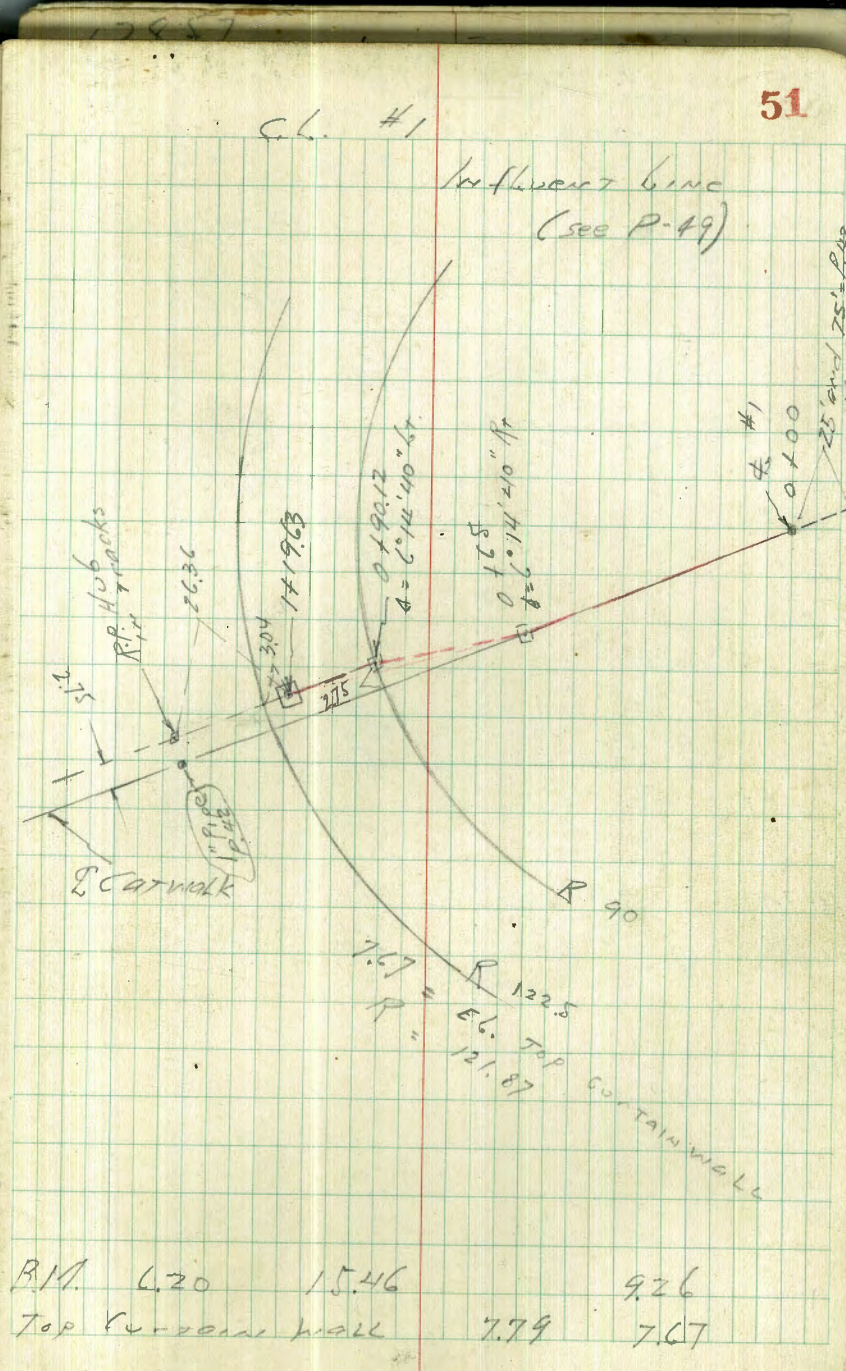 51
C.L. #1
Influent Line
(see P-49)
25' and 75' = P.
℄ #1
0+00
0+65
Δ = 6°14'40" Rt.
0+90.12
Δ = 6°14'40" Lt.
1+19.63
3.04
26.36
R.P. Hub
in Tracks
2.75
1" Pipe
P.42
℄ Catwalk
R 90
R 122.5
7.67 " El. Top Curtain Wall
R " 121.87
B.M. 6.20 15.46 9.26
Top Curtain Wall 7.79 7.67